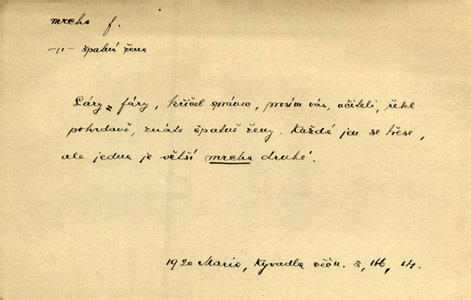 mrcha f.
-"- špatná žena
Láry fáry, křičel správec, prosím vás, učiteli, řekl
pohrdavě, znáte špatně ženy. Každá jen se třese,
ale jedna je větší mrcha druhé.
1920 Mario, Kyvadla věčn.